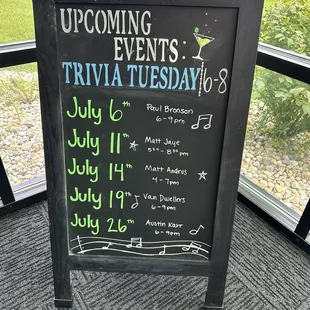 UPCOMING
EVENTS:
TRIVIA TUESDAY 6-8
July 6th Paul Bronson
6-9pm
July 11th Matt Jaye
5:00-8:00 pm
July 14 Matt Andrus
4-7pm
July 19th Van Dwellers
6-9pm
July 26th Austin Karr
6-9pm